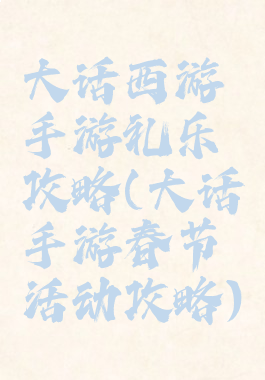 大话西游
手游礼乐
攻略(大话
手游春节
活动攻略)